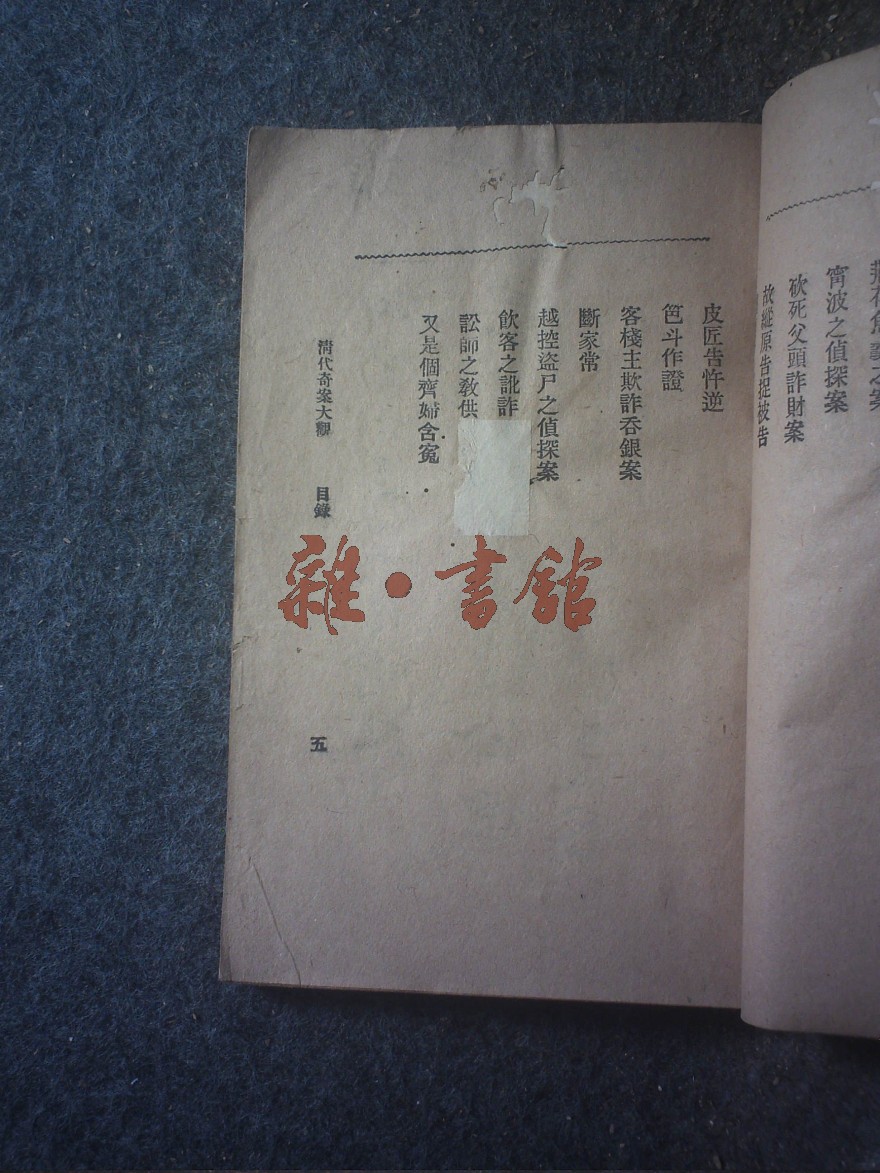 甯波之偵探案
砍死父頭詐財案
故縱原告捉被告
皮匠告忤逆
笆斗作證
客棧主欺詐吞銀案
斷家常
越控盜尸之偵探案
飲客之訛詐
訟師之教供
又是個齊婦含冤
清代奇案大觀 目錄
五
雜·書館